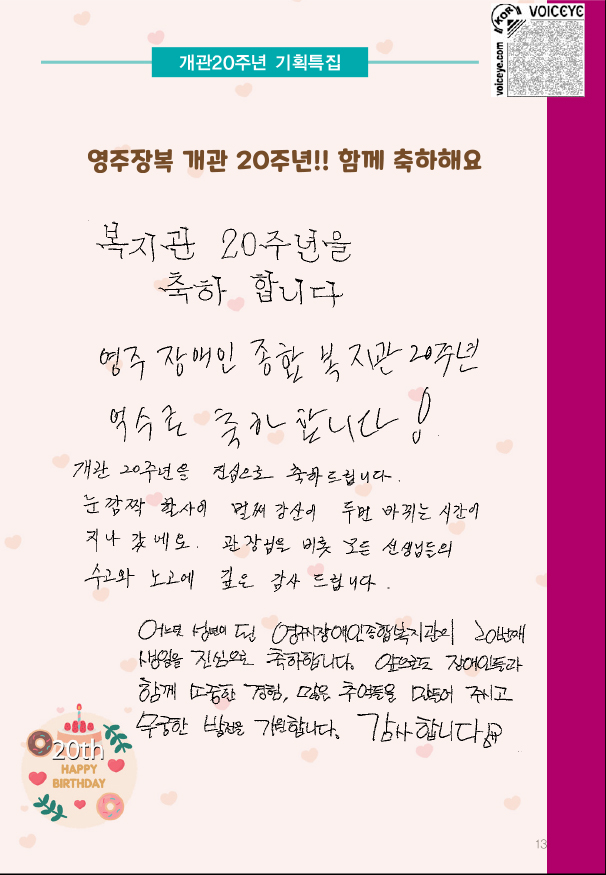 KOR VOICEYE
voiceye.com
개관20주년 기획특집
영주장복 개관 20주년!! 함께 축하해요
복지관 20주년을
축하 합니다
영주 장애인 종합 복지관 20주년
억수로 축하 합니다!
개관 20주년을 진심으로 축하드립니다.
눈 깜짝 할사이 벌써 강산이 두번 바뀌는 시간이
지나 갔네요. 관장님을 비롯 모든 선생님들의
수고와 노고에 깊은 감사 드립니다.
어느덧 성년이 된 영주시장애인종합복지관의 20번째
생일을 진심으로 축하합니다. 앞으로도 장애인들과
함께 소중한 경험, 많은 추억들을 만들어 주시고
무궁한 발전을 기원합니다. 감사합니다
20th
HAPPY
BIRTHDAY
13